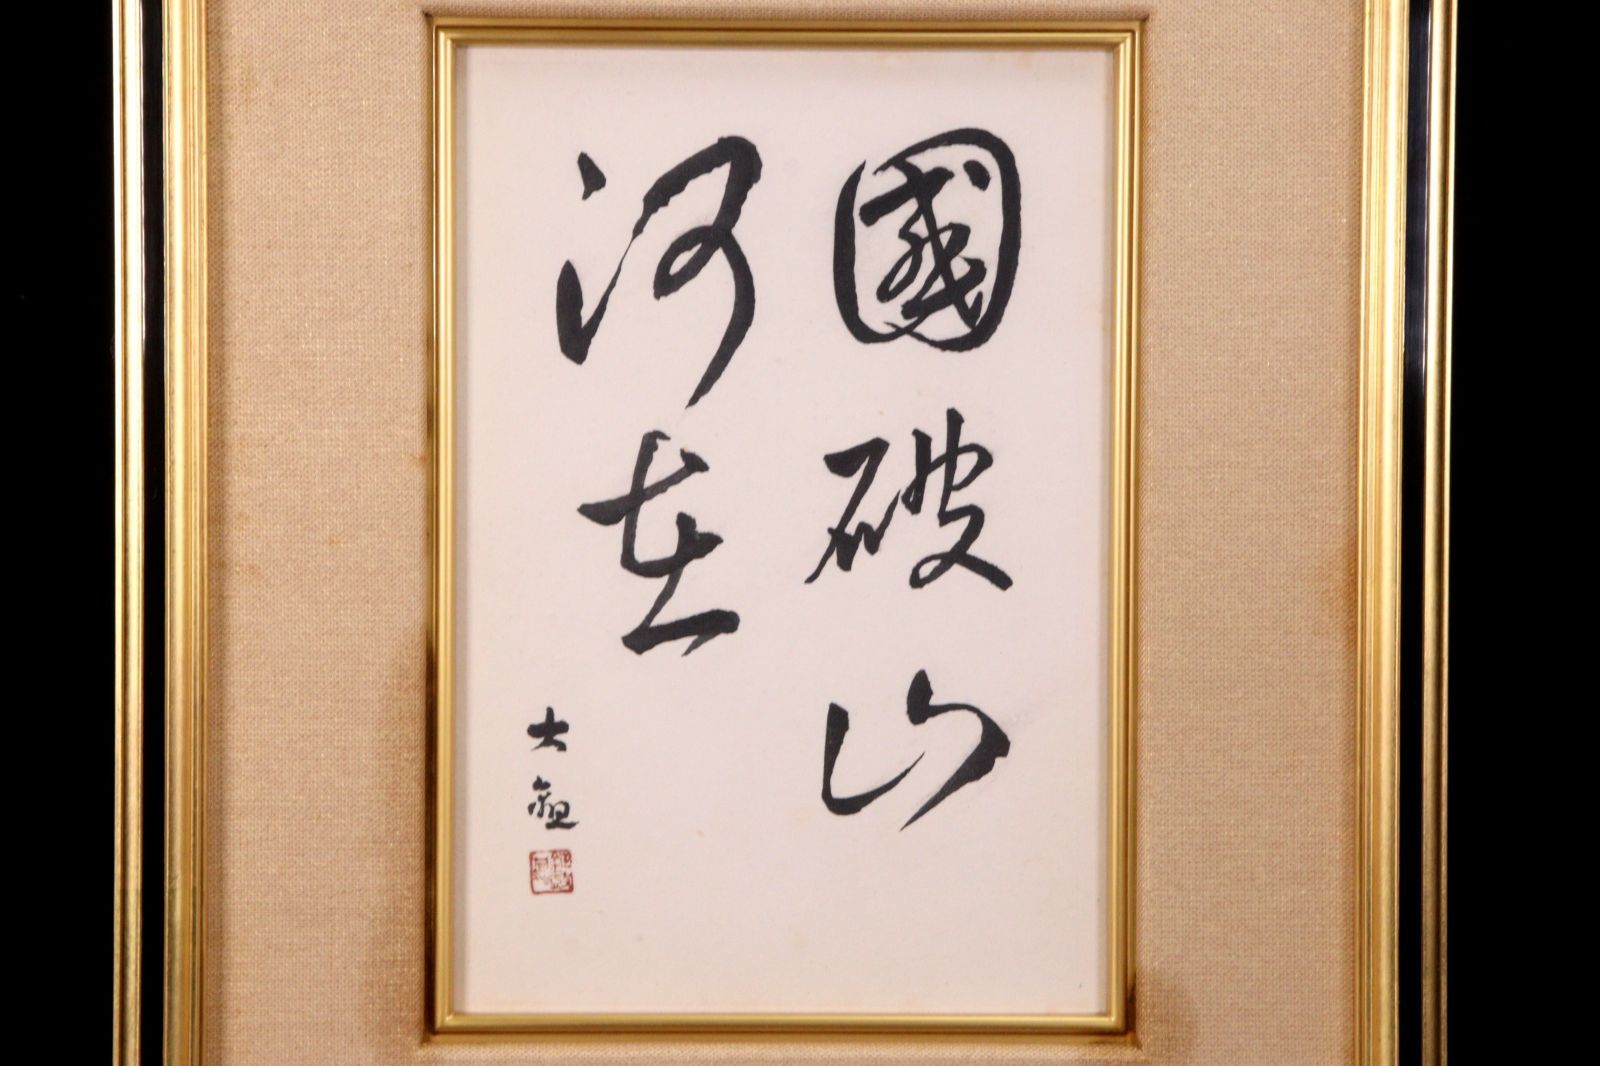 國破山
河在
大龜